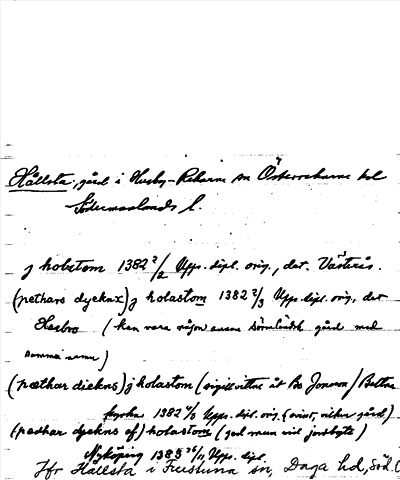 Hållsta, gård i Husby-Rekarne sn Österrekarne hd
Södermanlands l.
j holastom 1382 2/2 Upps. dipl. orig., dat. Västerås.
(pethars dyeknx) j holastom 1382 2/3 Upps. dipl. orig., dat
(kan vara någon annan sörmländsk gård med
samma namn)
(pæthar diekns) j holastom (sigillvittne åt Bo Jonsson /
kyrka 1382 Upps. dipl. orig. (ovisst, vilken gård)
(pædhar dyekns af) holastom (god man vid jordbyte)
Nyköping 1385 /11, Upps. dipl.
Jfr Hållsta i Frustuna sn, Daga hd, Söd.